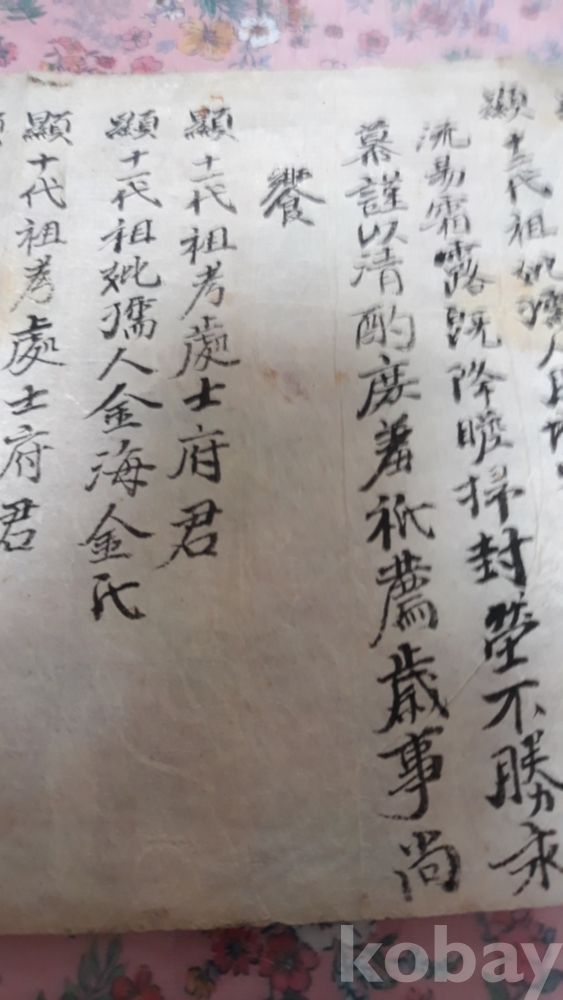 顯十二代祖妣孺人
流易霜露旣降瞻掃封塋不勝永
慕謹以淸酌庶羞祇薦歲事尙
饗
顯十一代祖考處士府君
顯十一代祖妣孺人金海金氏
顯十代祖考處士府君
kobay